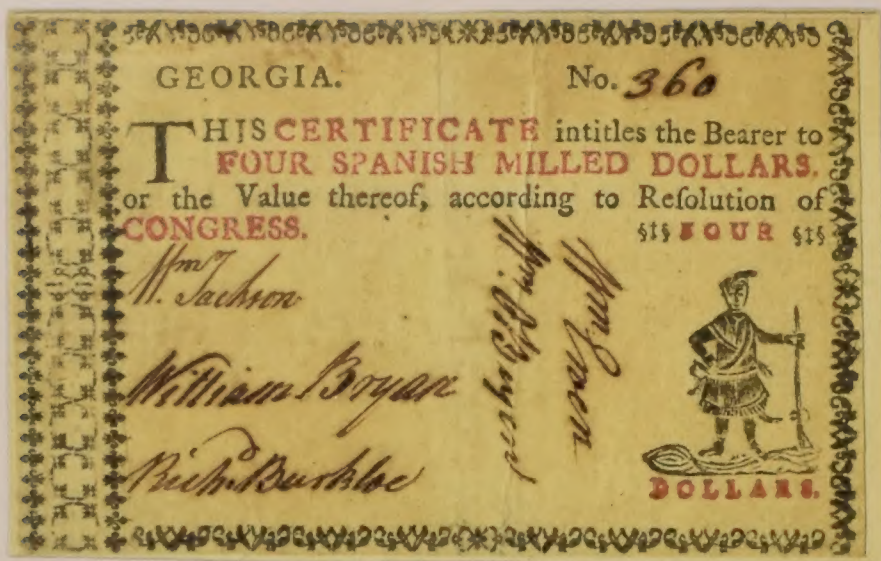 GEORGIA. No. 360
THIS CERTIFICATE intitles the Bearer to
FOUR SPANISH MILLED DOLLARS.
or the Value thereof, according to Reſolution of
CONGRESS. §‡§ FOUR §‡§
Wm. Jackson
William Bryan
Richd.
Wm.
Wm.
DOLLARS.